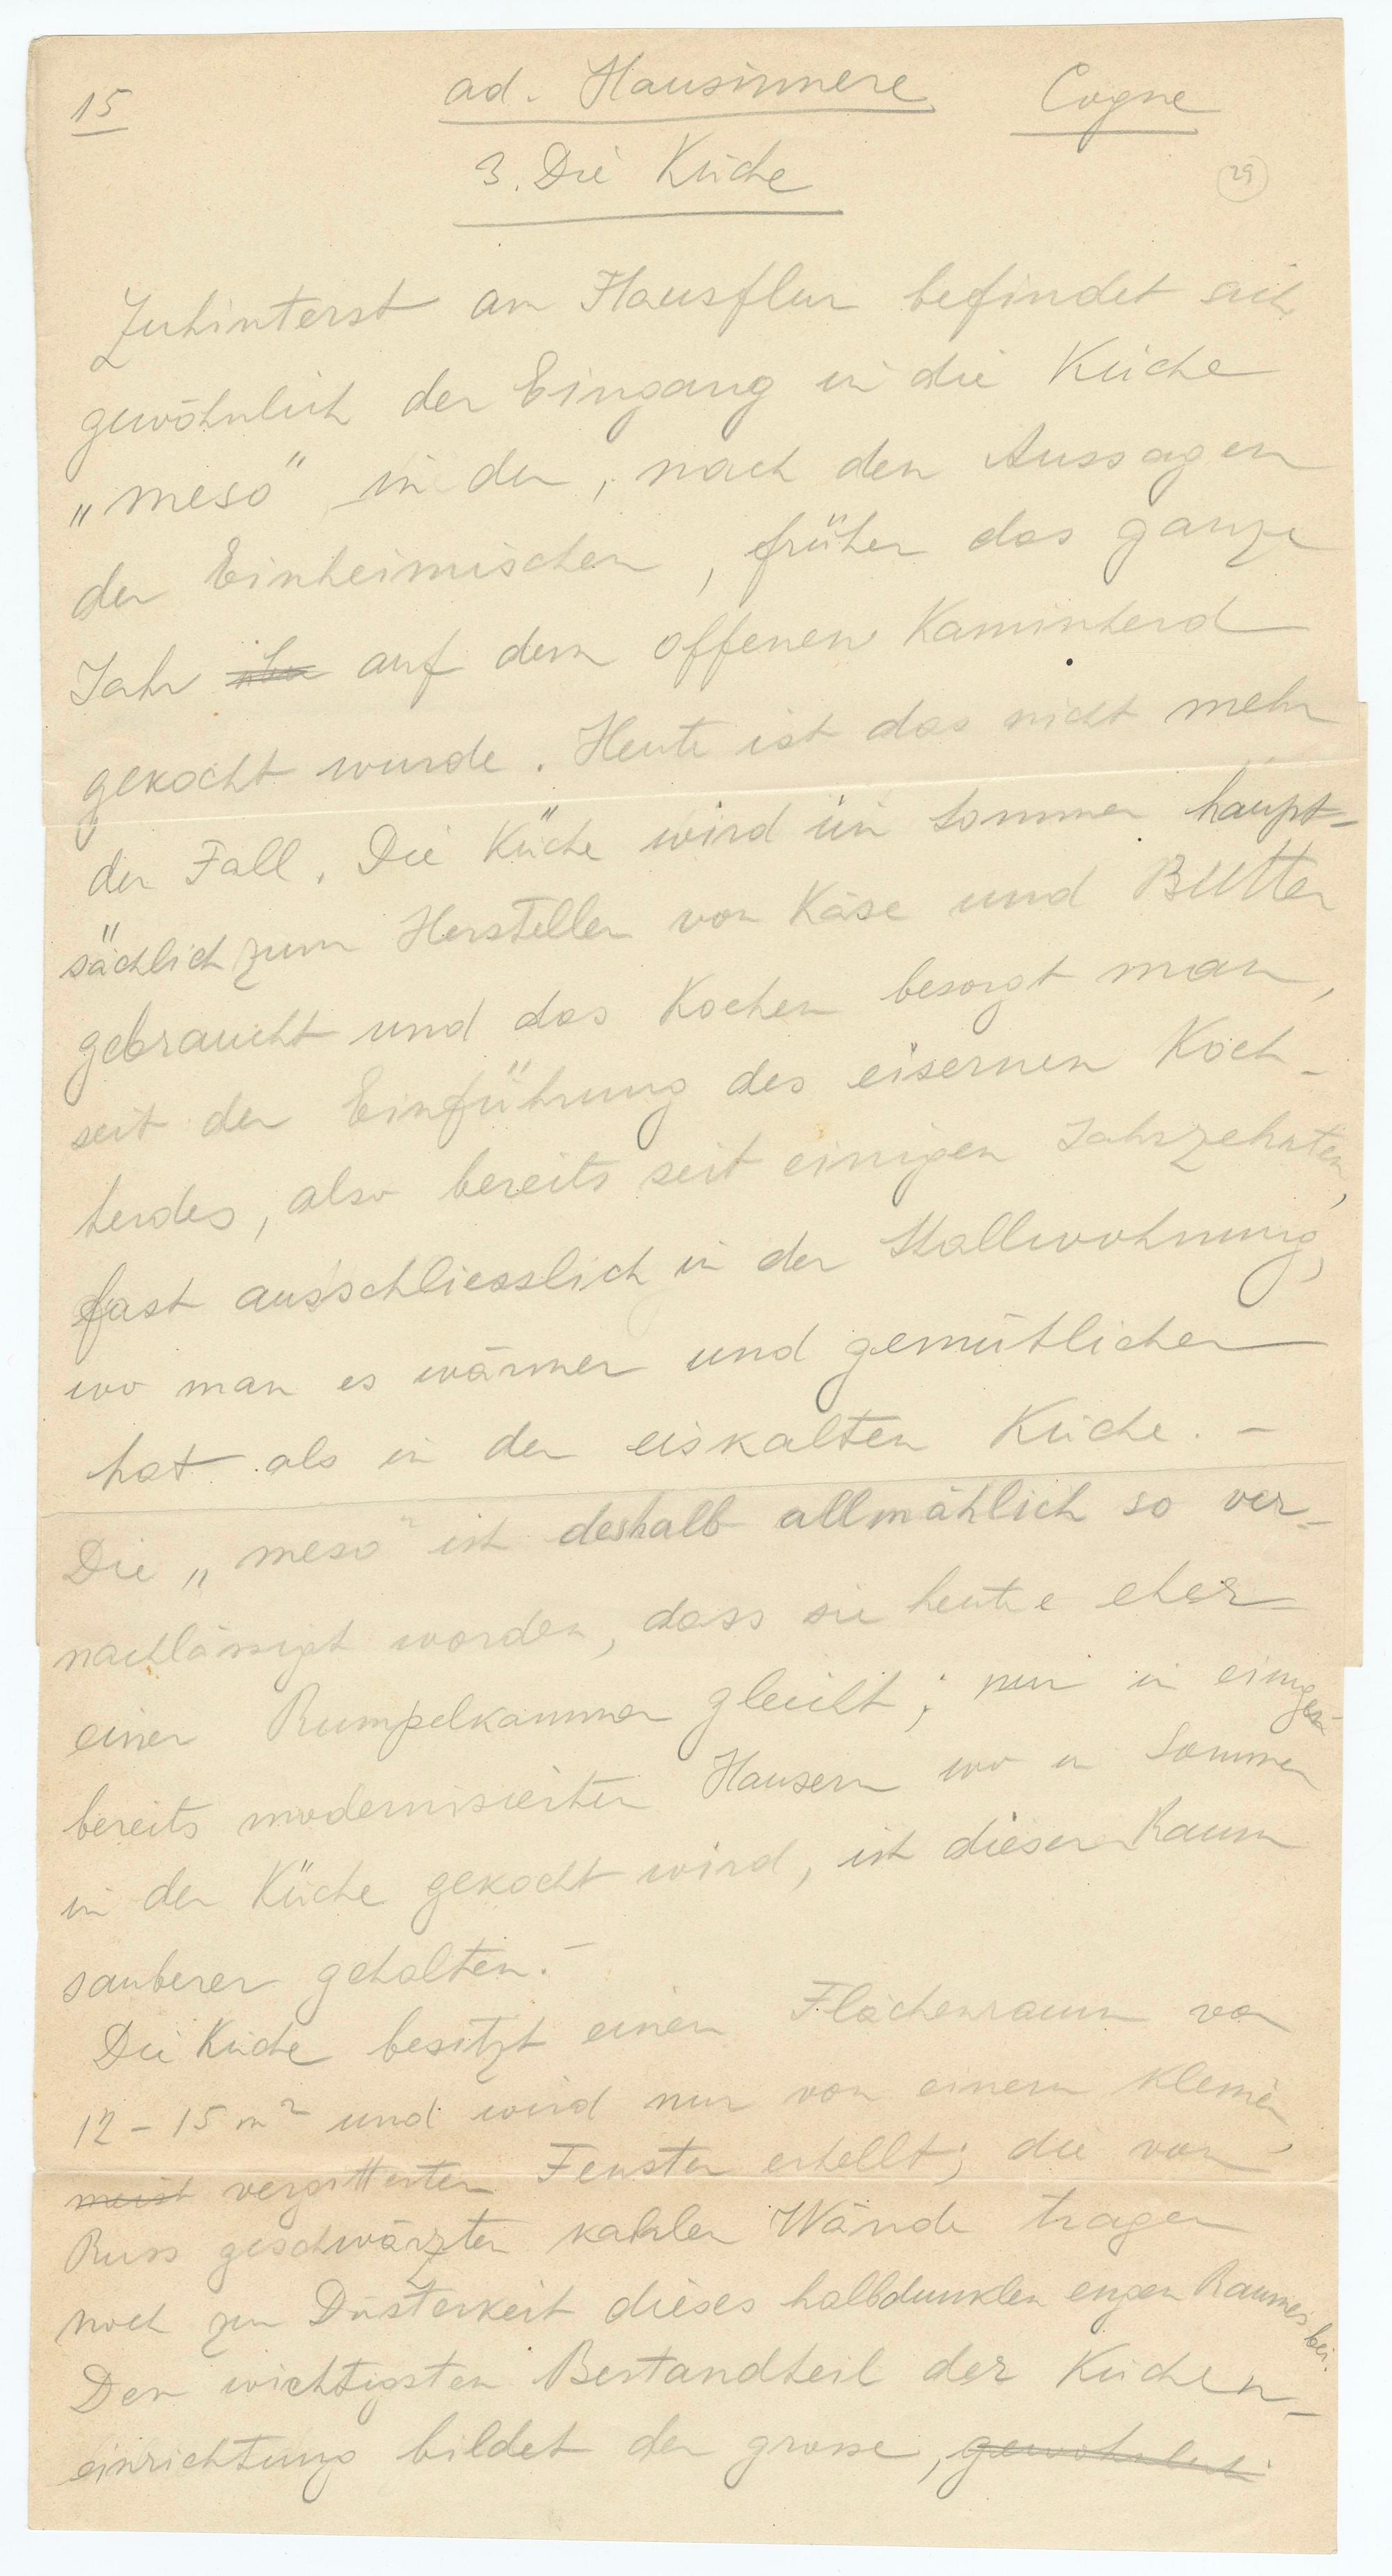 15 ad. Hausinnere Cogne
3. Die Küche
29
Zuhinterst am Hausflur befindet sich
gewöhnlich der Eingang in die Küche
„meso" in der, nach den Aussagen
der Einheimischen, früher das ganze
Jahr auf dem offenen Kaminherd
gekocht wurde. Heute ist das nicht mehr
der Fall. Die Küche wird im Sommer haupt-
sächlich zum Herstellen von Käse und Butter
gebraucht und das Kochen besorgt man,
seit der Einführung des eisernen Koch-
herdes, also bereits seit einigen Jahrzehnten,
fast ausschliesslich in der Stallwohnung,
wo man es wärmer und gemütlicher
hat als in der eiskalten Küche. –
Die „meso" ist deshalb allmählich so ver-
nachlässigt worden, dass sie heute eher
einer Rumpelkammer gleicht; nur in einigen
bereits modernisierten Häusern wo im Sommer
in der Küche gekocht wird, ist dieser Raum
sauberer gehalten. –
Die Küche besitzt einen Flächenraum von
12 – 15 m² und wird nur von einem kleinen,
meist vergitterten Fenster erhellt; die von
Russ geschwärzten kahlen Wände tragen
noch zur Düsterkeit dieses halbdunklen engen Raumes bei.
Den wichtigsten Bestandteil der Küchen-
einrichtung bildet der grosse, gewöhnlich